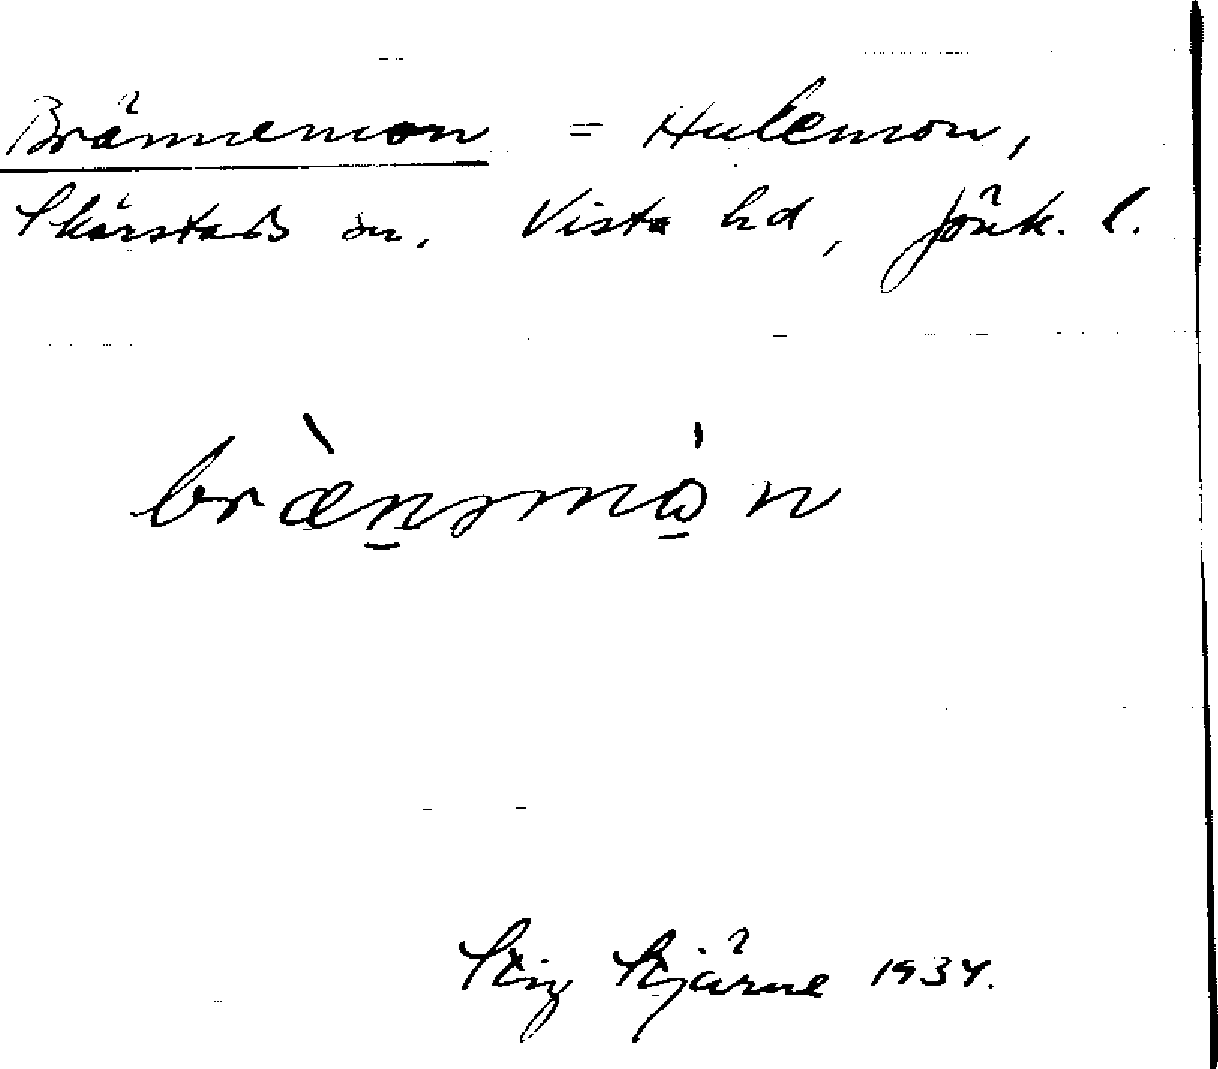 Brännemon = Hulemon,
Skärstads sn. Vista hd, Jönk. l.
brænəmωn
Stig Stjärne 1934.